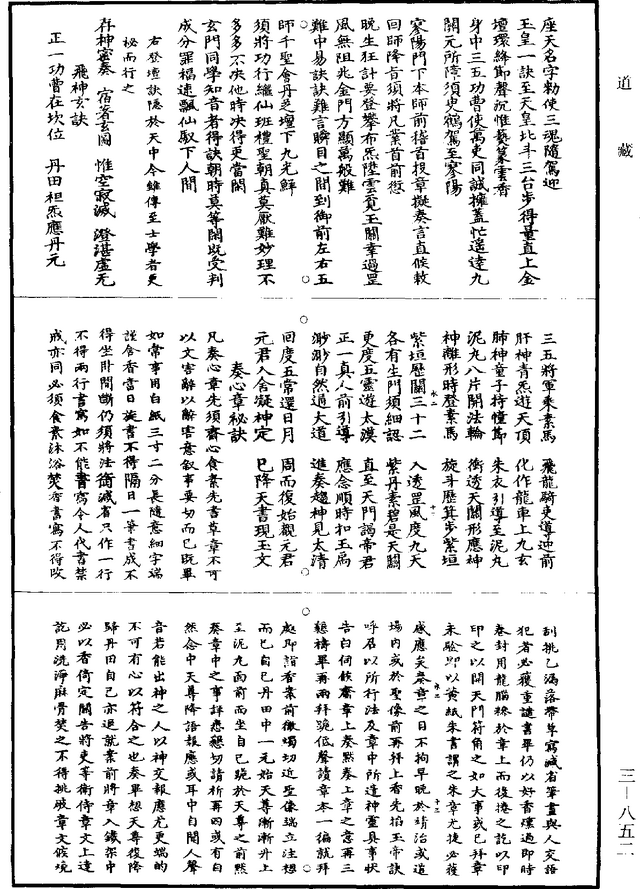 道藏
座天名字勅使三魂隨駕迎
玉皇一訣至天皇北斗三台步得量直上金
壇環絳節聲沉惟藝篆雲香
身中三五功曹使萬吏同誠擁蓋忙遥達九
關元所降須臾鶴駕至寥陽
寥陽門下本師前稽首投章擬奏言直候敕
回師降音須將凡業首前愆
晩生狂計要登攀布炁陞雲覓玉關幸過罡
風無阻兆金門方顯萬般難
難中易訣訣難言瞬目之間到御前左右五
師千聖會丹芝壇下九光鮮
須將功行繼仙班禮聖朝真莫厭難妙理不
多多不決他時決得更當閑
玄門同學知音者得訣朝時莫等閑既受判
成分罪福速飄仙馭下人間
右登壇訣隱於天中今雖傳至士學者更
秘而行之
飛神玄訣
存神密奏 宿著玄圖 惟空寂滅 澄湛虛无
正一功曹在坎位 丹田袒炁應丹元
三五將軍乘素馬 飛龍騎吏道迎前
肝神青炁遊天頂 化作龍車上九玄
肺神童子持幢節 朱衣引導至泥丸
泥丸八片開法輪 衝透天關形應神
神離形時登素馬 旋斗歷箕步紫垣
紫垣歷關三十二 入透罡風度九天
各有生門須細認 紫丹素碧是天關
更度五靈遊太漠 直至天門謁帝君
正一真人前引導 應念順時扣玉扃
渺渺自然通大道 進奏趨神見太清
回度五常還日月 周而復始觀元君
元君入舍凝神定 已降天書現玉文
奏心章秘訣
凡奏心章先須齋心食素先書草章不可
以文害辭以辭害意叙事要切而已既畢
如常事用白紙三寸二分長隨意細字端
謹含香當日旋書不得隔日一筆書成不
得坐時間斷仍須將法銜減省只作一行
不得兩行書寫如不能書寫令人代書禁
戒亦同必須食素沐浴焚香書寫不得改
刮挑乙漏落帶草寫減省筆畫與人交語
犯者必獲重譴書畢仍以好香燻過即時
卷封用龍腦糝於章上而後捲之訖以印
印之以開天門符角之如大事或已拜章
未驗即以黃紙朱書謂之朱章尤捷必獲
感應矣奏章之日不拘早晩於靖治或道
場內或於聖像前再拜上香先掐玉帝訣
呼召以所行法及章中所達神靈具事狀
告白伺候齋章上奏默奏上章之意再三
懇禱畢再兩拜跪低聲讀章本一編就拜
處即詣香案前微燭切近聖像端立注想
而已自己丹田中一元始天尊漸漸升上
至泥丸面前而坐自己跪於天尊之前然
奏章中之事詳悉懇切請祈再四或有自
然念中天尊降語報應或耳中自聞人聲
音若能出神之人以神交報應尤更端的
不可有心以符合之也奏畢想天尊復降
歸丹田自己亦退就案前將章入鐵架中
必以香倚定關告將吏等衛侍章文上達
訖用洗淨麻骨焚之不得挑撥章文候燒
三—八五二